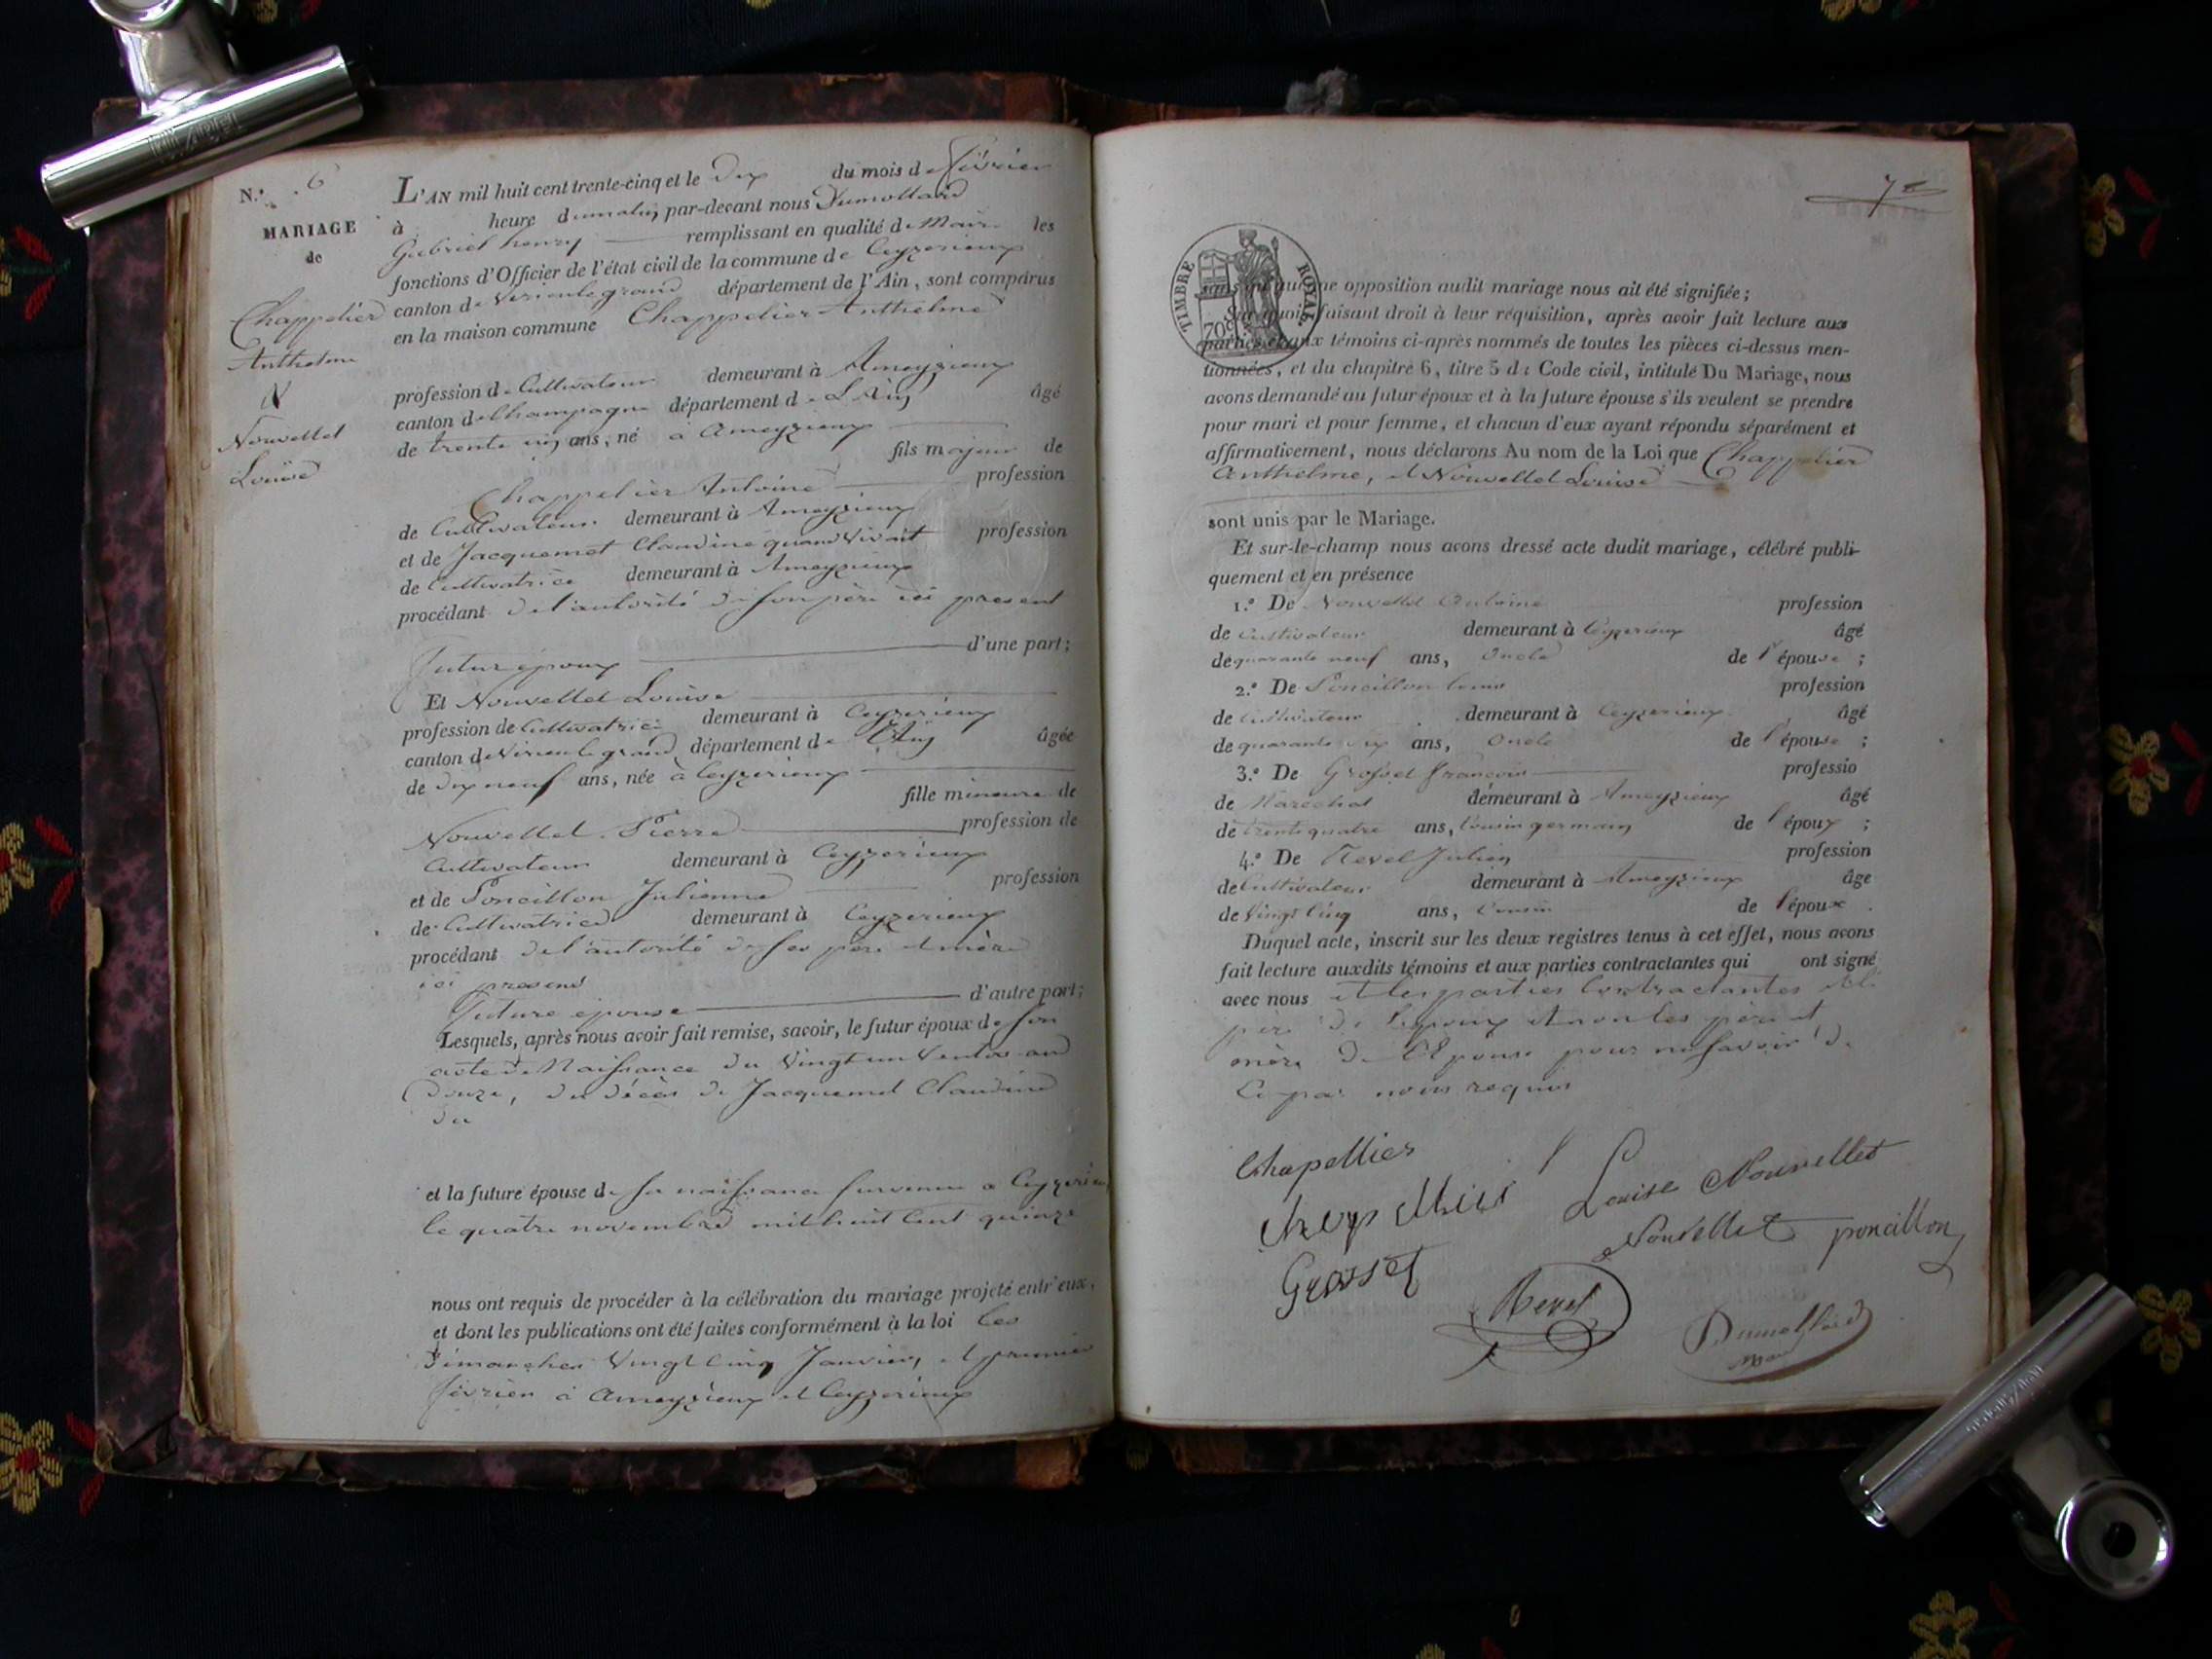 N.º 6
MARIAGE
de
Chappelier
Anthelme
&
Nouvellet
Louise
L'AN mil huit cent trente-cinq et le dix du mois de février
à heure du matin par-devant nous Dumollard
Gabriel henry remplissant en qualité de Maire les
fonctions d'Officier de l'état civil de la commune de Ceyzerieux
canton de Virieu le grand département de l'Ain, sont comparus
en la maison commune Chappelier Anthelme
profession de Cultivateur demeurant à Ameyzieux
canton de Champagne département de L'Ain âgé
de trente un ans, né à Ameyzieux
fils majeur de
Chappelier Antoine profession
de Cultivateur demeurant à Ameyzieux
et de Jacquemet Claudine quand vivait profession
de Cultivatrice demeurant à Ameyzieux
procédant de l'autorité de son père ici présent
futur époux d'une part;
Et Nouvellet Louise
profession de Cultivatrice demeurant à Ceyzerieux
canton de Virieu le grand département de L'Ain âgée
de dix neuf ans, née à Ceyzerieux
fille mineure de
Nouvellet Pierre profession de
Cultivateur demeurant à Ceyzerieux
et de Poncillon Julienne profession
de Cultivatrice demeurant à Ceyzerieux
procédant de l'autorité de ses père et mère
ici présens
future épouse d'autre part;
Lesquels, après nous avoir fait remise, savoir, le futur époux de son
acte de Naissance du Vingt un Ventos an
Douze, du décès de Jacquemet Claudine
du
et la future épouse de sa naissance survenue a Ceyzerieu
le quatre novembre mil huit cent quinze
nous ont requis de procéder à la célébration du mariage projeté entr'eux,
et dont les publications ont été faites conformément à la loi les
dimanches Vingt Cinq Janvier, et premier
février à Ameyzieux et Ceyzerieux
7e
TIMBRE ROYAL
70c
sans qu'aucune opposition audit mariage nous ait été signifiée;
Sur quoi faisant droit à leur réquisition, après avoir fait lecture aux
parties et aux témoins ci-après nommés de toutes les pièces ci-dessus men-
tionnées, et du chapitre 6, titre 5 du Code civil, intitulé Du Mariage, nous
avons demandé au futur époux et à la future épouse s'ils veulent se prendre
pour mari et pour femme, et chacun d'eux ayant répondu séparément et
affirmativement, nous déclarons Au nom de la Loi que Chappelier
Anthelme, et Nouvellet Louise
sont unis par le Mariage.
Et sur-le-champ nous avons dressé acte dudit mariage, célébré publi-
quement et en présence
1.º De Nouvellet Antoine profession
de Cultivateur demeurant à Ceyzerieux âgé
de quarante neuf ans, Oncle de l'épouse;
2.º De Poncillon profession
de Cultivateur demeurant à Ceyzerieux âgé
de quarante six ans, Oncle de l'épouse;
3.º De Grosset françois professio
de Maréchal demeurant à Ameyzieux âgé
de trente quatre ans, Cousin germain de l'époux;
4.º De Revel Julien profession
de Cultivateur demeurant à Ameyzieux âgé
de Vingt Cinq ans, Cousin de l'époux.
Duquel acte, inscrit sur les deux registres tenus à cet effet, nous avons
fait lecture auxdits témoins et aux parties contractantes qui ont signé
avec nous et les parties Contractantes et le
père de l'époux et non les père et
mère de L'Epouse pour ne savoir de
Ce par nous requis
Chapellier
Chapellier
Louise Nouvellet
Nouvellet poncillon
Grosset
Revel
Dumollard
Maire